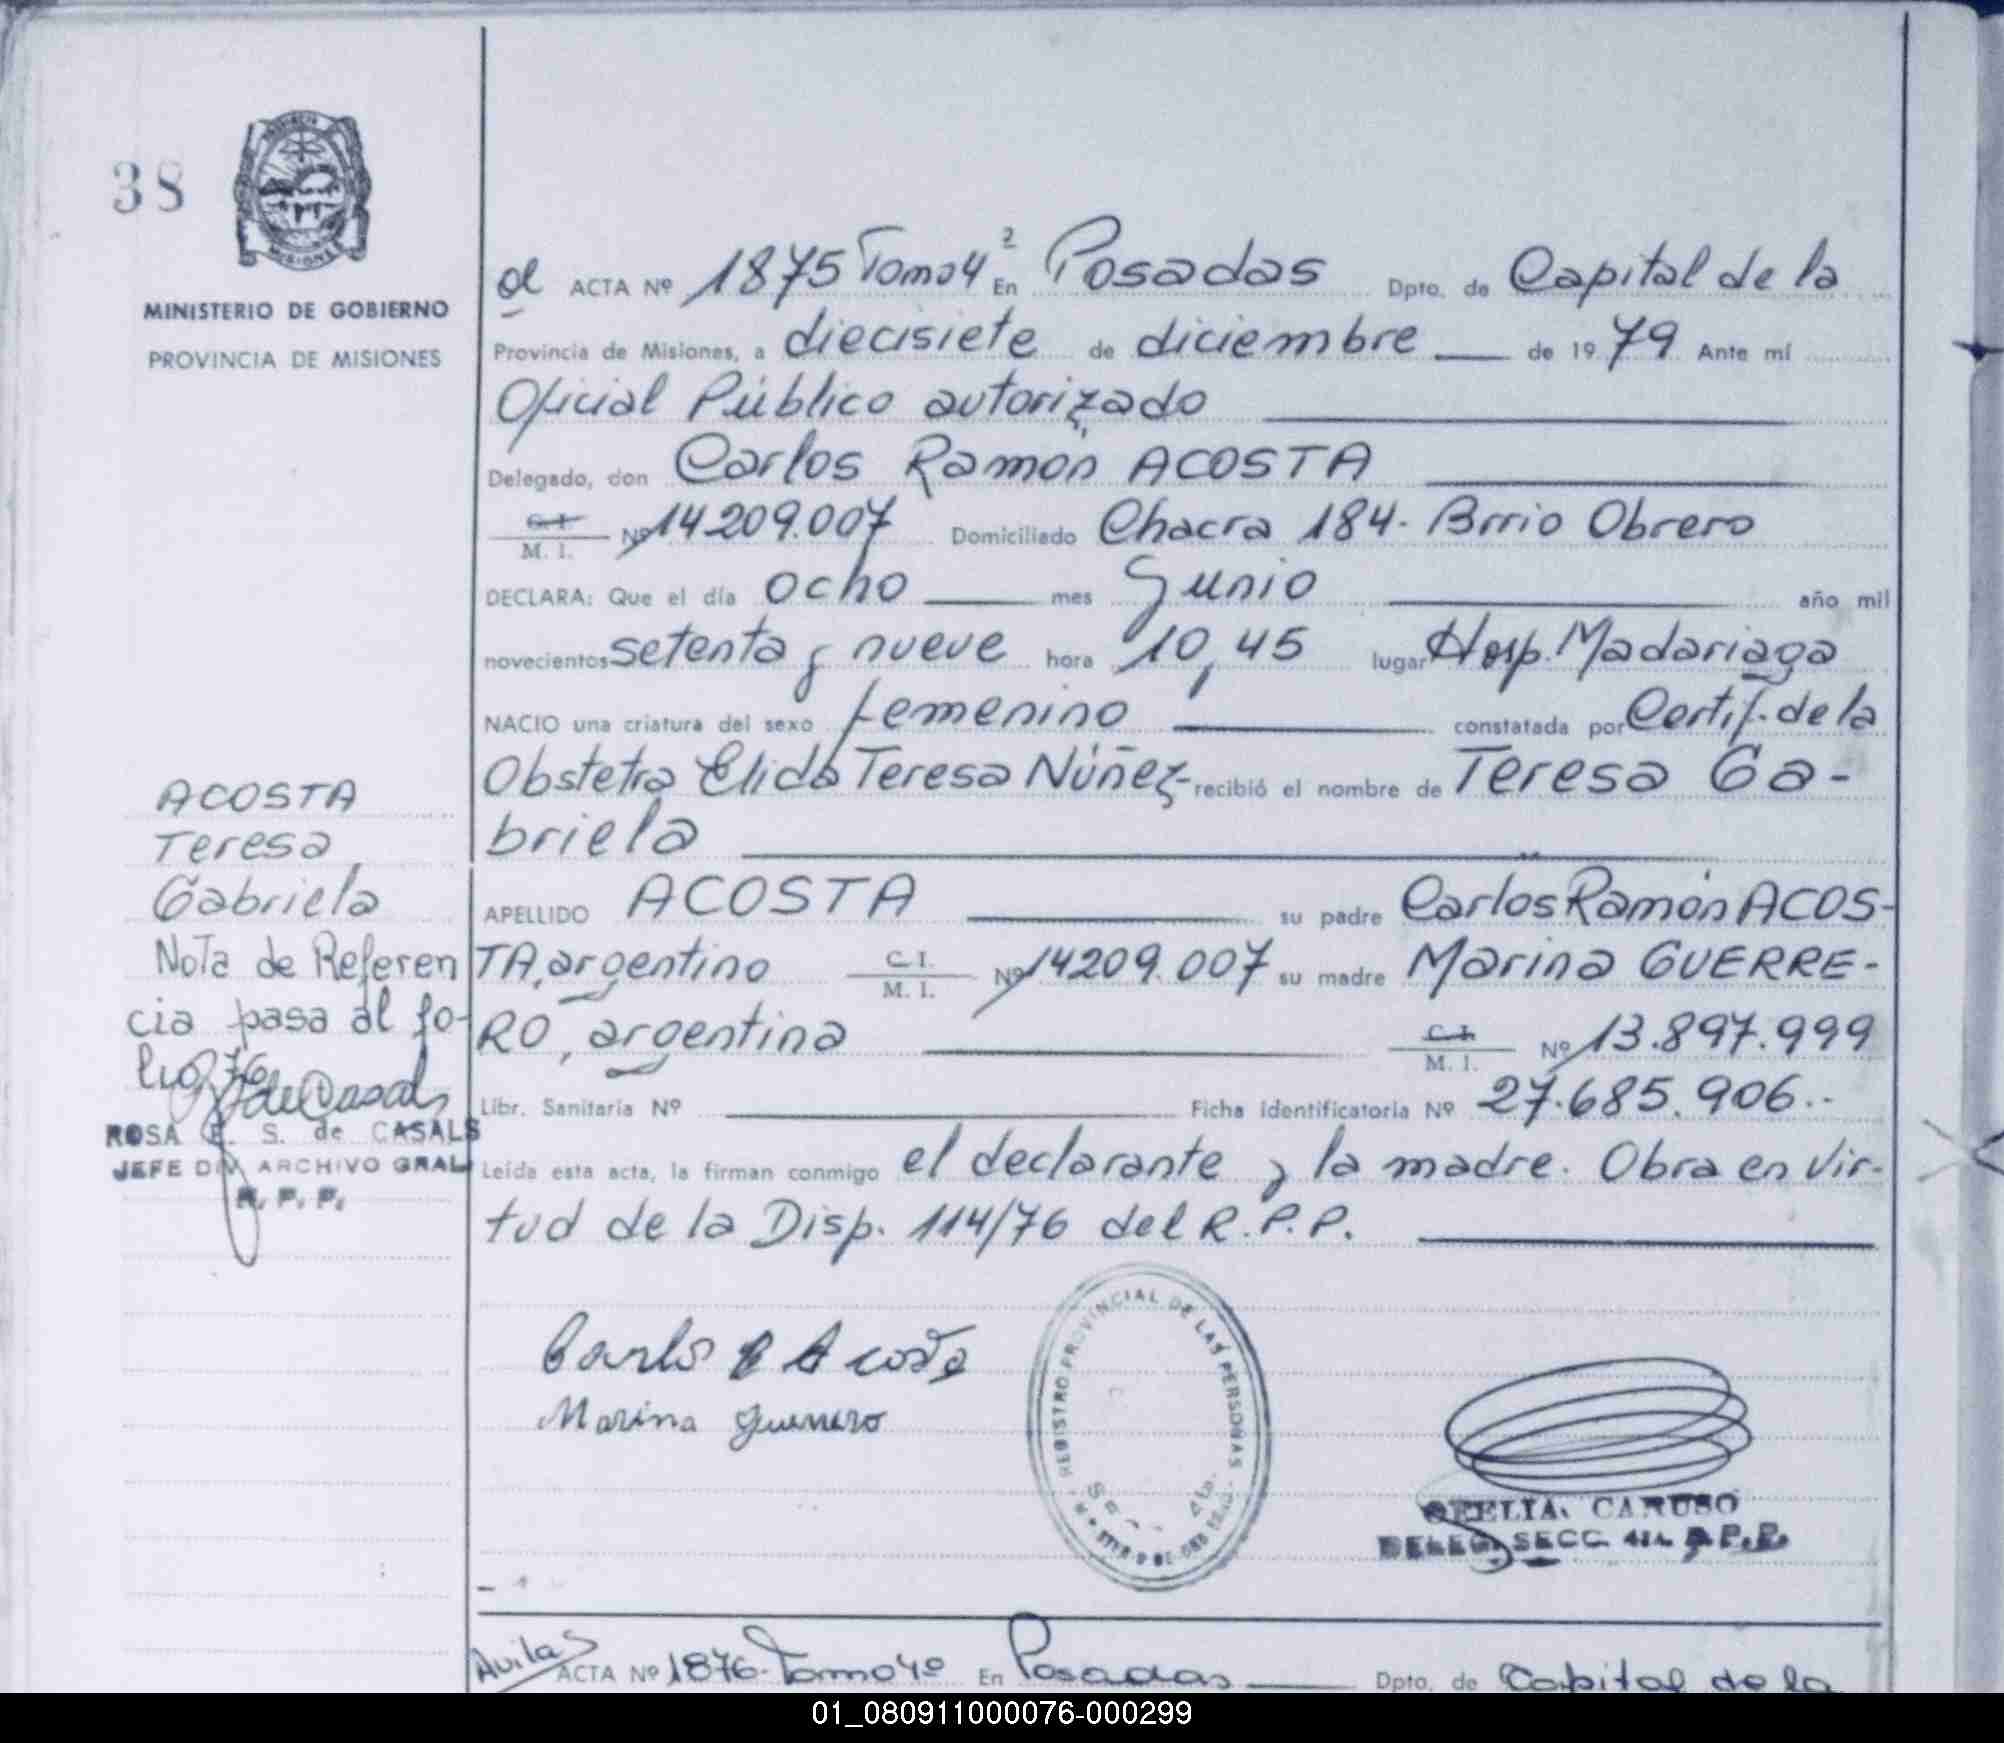 38
MINISTERIO DE GOBIERNO
PROVINCIA DE MISIONES
ACTA Nº 1875 Tomo 4º En Posadas Dpto. de Capital de la
Provincia de Misiones, a diecisiete de diciembre de 1979 Ante mí
Oficial Público autorizado
Delegado, don Carlos Ramón ACOSTA
C. I. / M. I. Nº 14209.007 Domiciliado Chacra 184. Brrio Obrero
DECLARA: Que el día ocho mes Junio año mil
novecientos setenta y nueve hora 10,45 lugar Hosp. Madariaga
NACIO una criatura del sexo femenino constatada por Certif. de la
Obstetra Elida Teresa Núñez- recibió el nombre de Teresa Ga-
briela
APELLIDO ACOSTA su padre Carlos Ramón ACOS-
TA, argentino C. I. / M. I. Nº 14209.007 su madre Marina GUERRE-
RO, argentina C. I. / M. I. Nº 13.897.999
Libr. Sanitaria Nº Ficha identificatoria Nº 27.685.906.-
Leída esta acta, la firman conmigo el declarante y la madre. Obra en vir-
tud de la Disp. 114/76 del R.P.P.
ACOSTA
Teresa
Gabriela
Nota de Referen
cia pasa al fo-
lio 76
de Casals
ROSA E. S. de CASALS
JEFE DIV. ARCHIVO GRAL
R. P. P.
Carlos R Acosta
Marina Guerrero
REGISTRO PROVINCIAL DE LAS PERSONAS
OFELIA CARUSO
DELEG. SECC. 4ta. R.P.P.
Avilas
ACTA Nº 1876. Tomo 4º En Posadas Dpto. de Capital de la
01_080911000076-000299